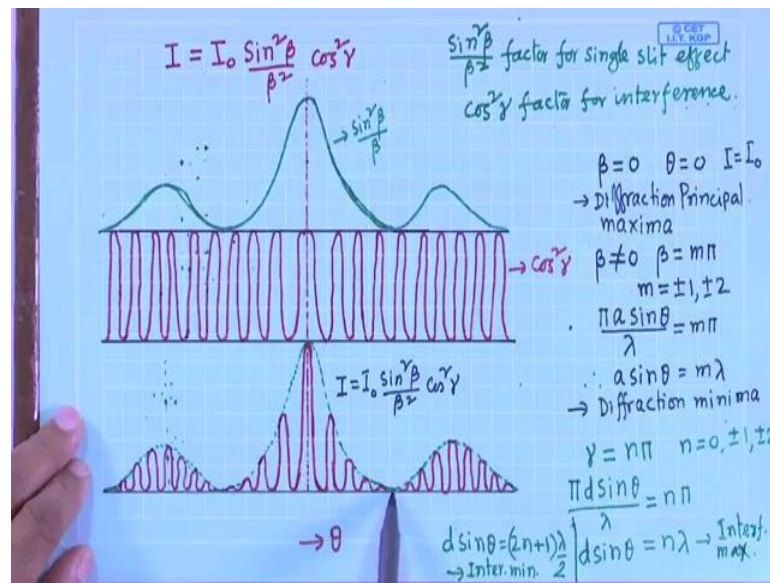 I = I₀ sin²β/β² cos²γ
© CET
I.I.T. KGP
sin²β/β² factor for single slit effect
cos²γ factor for interference.
→ sin²β/β
β=0 θ=0 I=I₀
→ Diffraction Principal
maxima
β≠0 β=mπ
m=±1,±2
→ cos²γ
πa sinθ/λ = mπ
∴ a sinθ = mλ
→ Diffraction minima
I=I₀ sin²β/β² cos²γ
γ=nπ n=0,±1,±2
πd sinθ/λ = nπ
→ θ
d sinθ=(2n+1)λ/2
→ Inter. min.
d sinθ = nλ → Interf.
max.